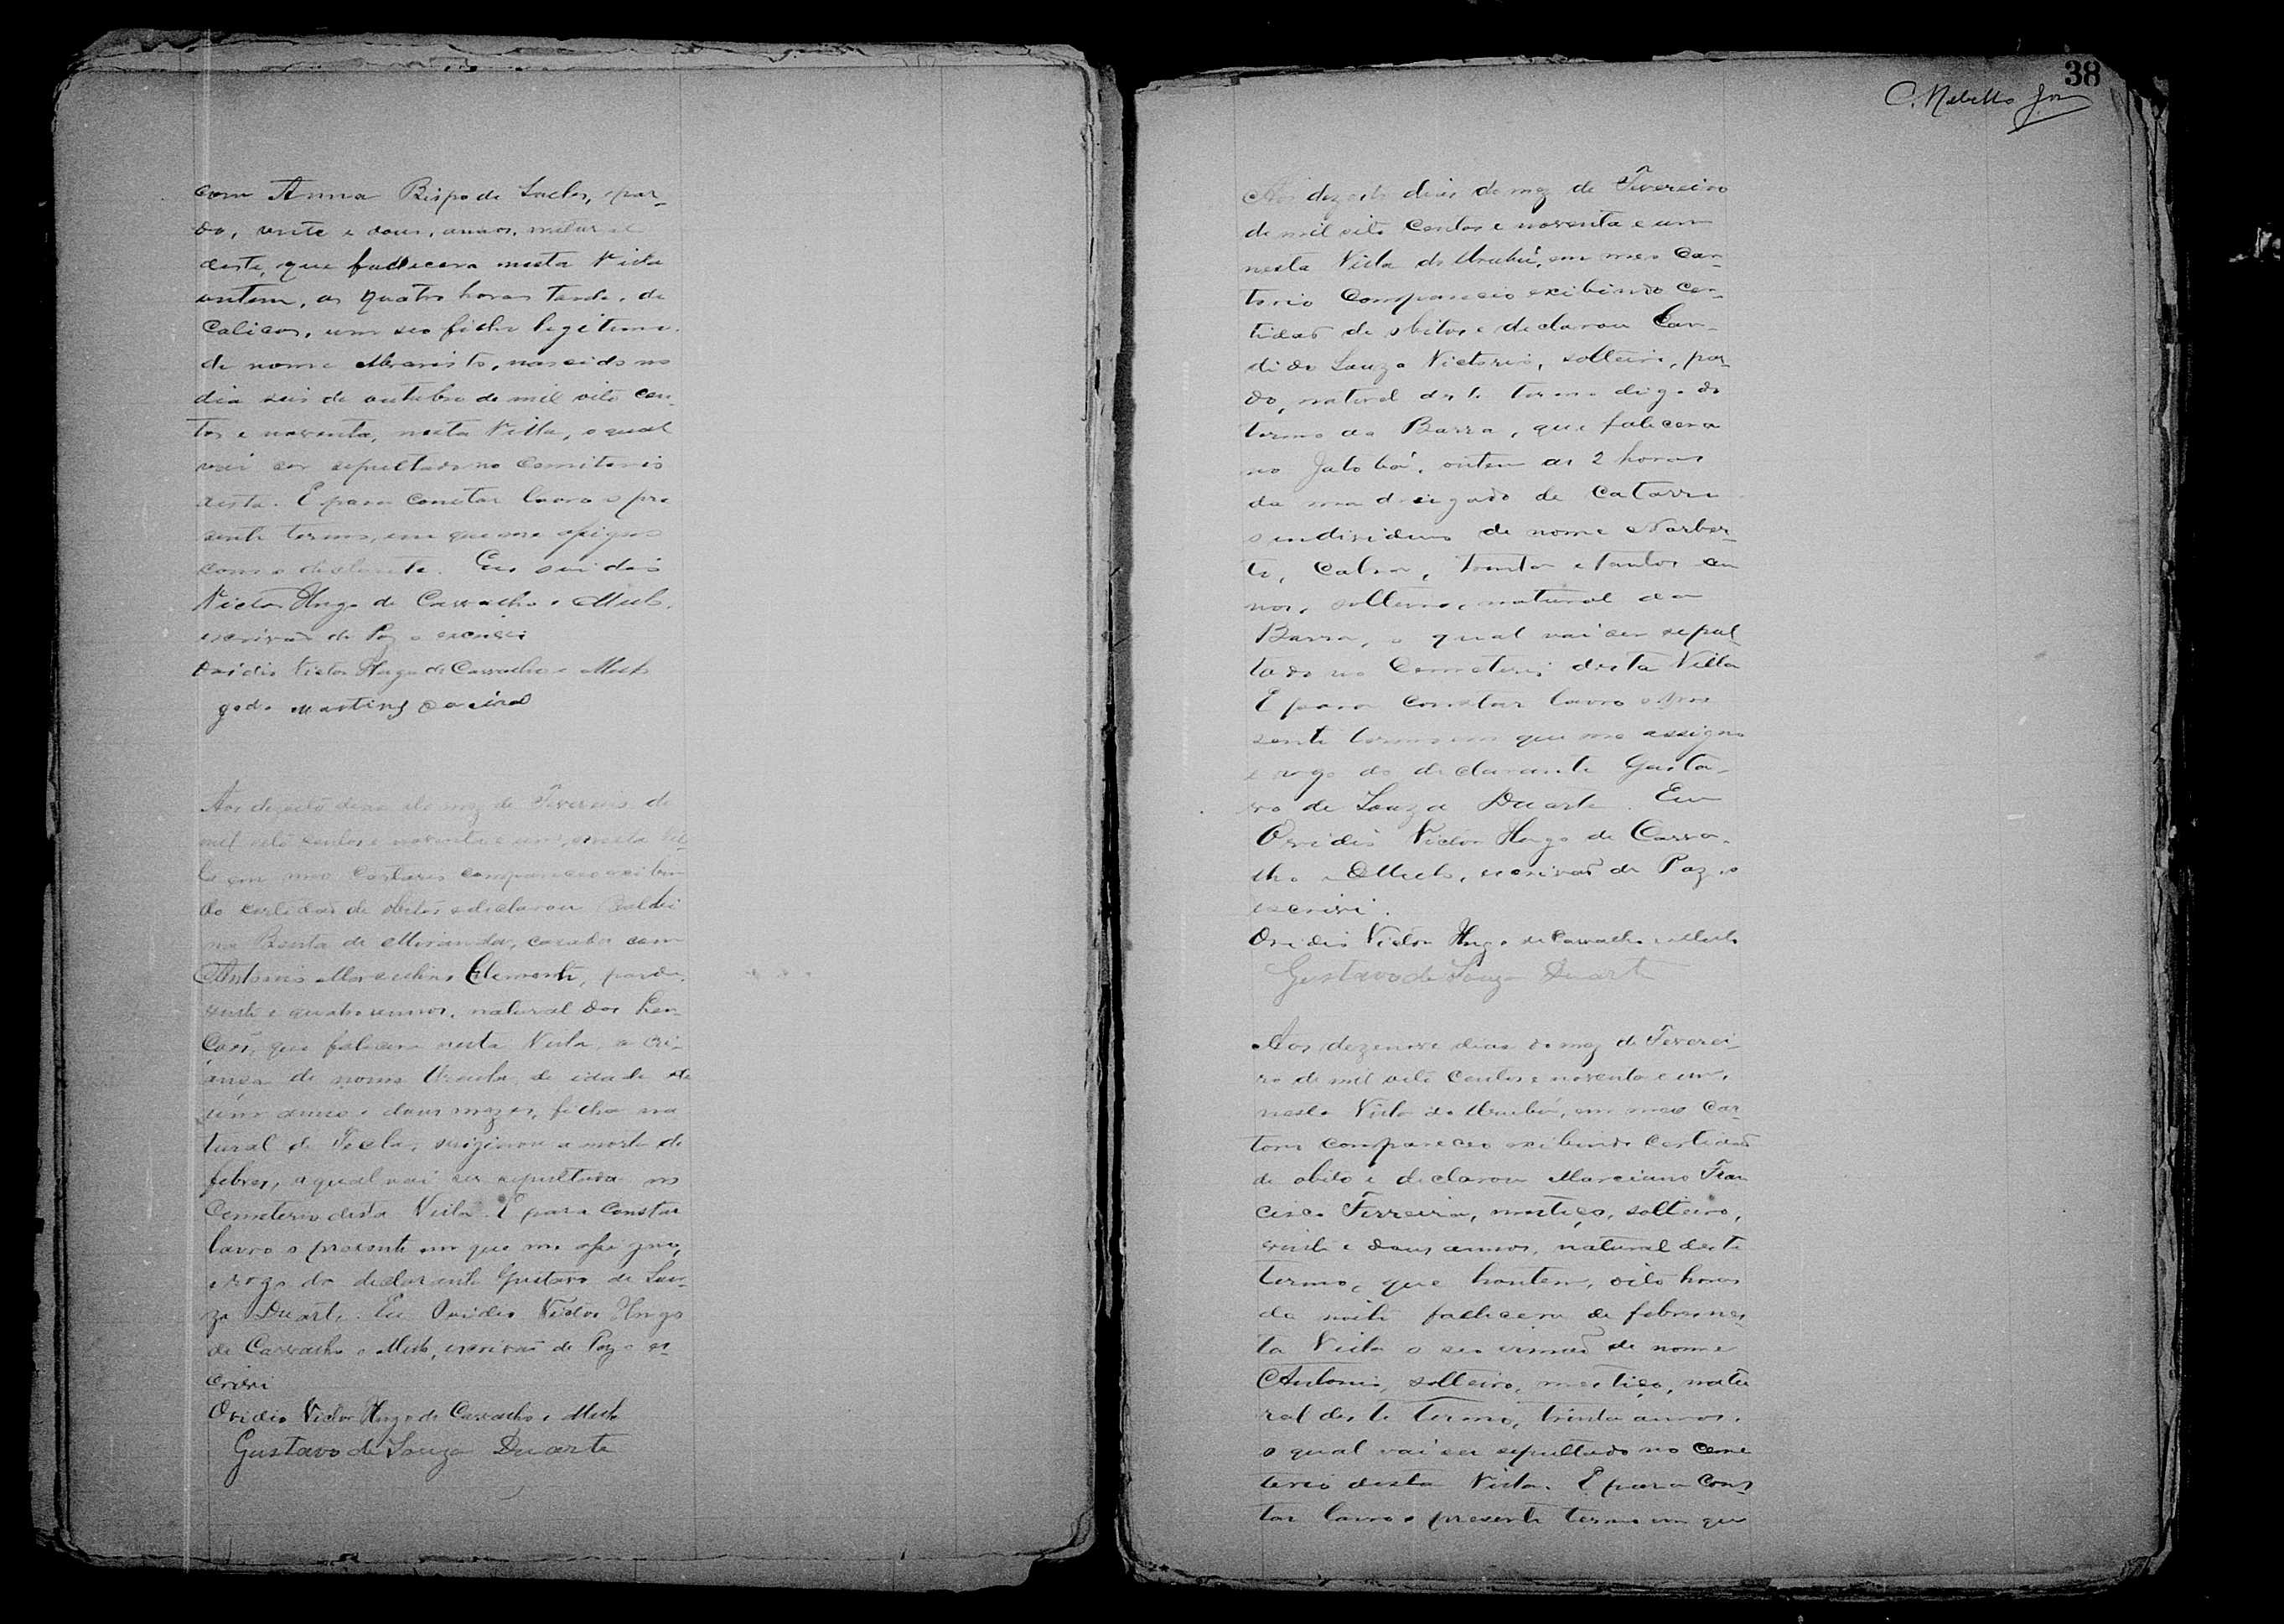 com Anna Bispo de Santos, par-
do, vinte e dous, annos, natural
deste, que fallecera nesta Villa
ontem, as quatro horas tarde, de
Colicas, um seo filho legitimo
de nome Abranisto, nascido no
dia seis de outubro de mil oito cen-
tos e noventa, nesta Villa, o qual
vai ser sepultado no Cemiterio
desta. E para constar lavro o pre
sente termo, em que me assigno
com o declarante. Eu Ovidio
Victor Hugo de Carvalho e Mello,
escrivaõ de Paz o escrevi
Ovidio Victor Hugo de Carvalho e Mello
Martins
Aos dezoito dias do mez de Fevereiro de
mil oito centos e noventa e um, nesta Vil-
la em meo Cartorio compareceo exibin
do certidaõ de obitos e declarou Baldui
na Benta de Miranda, casada com
Antonio Marculino Clemente, parda,
vinte e quatro annos, natural dos Len-
çoes, que falecera nesta Villa, a cri-
ança de nome Ursula, de idade de
um anno e dous mezes, filha na
tural de Tecla, originou a morte de
febres, a qual vai ser sepultada no
Cemeterio desta Villa. E para constar
lavro o presente em que me assigno,
e rogo da declarante Gustavo de Sou-
za Duarte. Eu Ovidio Victor Hugo
de Carvalho e Mello, escrivaõ de Paz o es-
crevi
Ovidio Victor Hugo de Carvalho e Mello
Gustavo de Souza Duarte
38
C. Rebello Jor
Aos dezoito dias do mez de Fevereiro
de mil oito centos e noventa e um
nesta Villa do Urubú, em meo Car-
torio Compareceo exibindo cer-
tidaõ de obitos e declarou Can-
dido Souza Victorio, solteiro, par-
do, natural deste termo digo do
termo da Barra, que falecera
no Jatobá, ontem as 2 horas
da madrugada de Catarro
o individuo de nome Norber-
to, Cabra, trinta e tantos an
nos, solteiro, natural da
Barra, o qual vai ser sepul
tado no Cemeterio desta Villa
E para constar lavro o pre
sente termo em que me assigno
e rogo do declarante Gusta-
vo de Souza Duarte. Eu
Ovidio Victor Hugo de Carva-
lho e Mello, escrivaõ de Paz, o
escrevi.
Ovidio Victor Hugo de Carvalho e Mello
Gustavo de Souza Duarte
Aos dezenove dias do mez de Feverei-
ro de mil oito centos e noventa e um,
nesta Villa do Urubú, em meo Car
torio compareceo exibindo certidaõ
de obito e declarou Marciano Fran
cisco Ferreira, mestiço, solteiro,
vinte e dous annos, natural deste
termo, que hontem, oito horas
da noite fallecera de febres nes-
ta Villa o seo irmaõ de nome
Antonio, solteiro, mestiço, natu
ral deste termo, trinta annos,
o qual vai ser sepultado no ceme
terio desta Villa. E para cons
tar lavro o presente termo em que